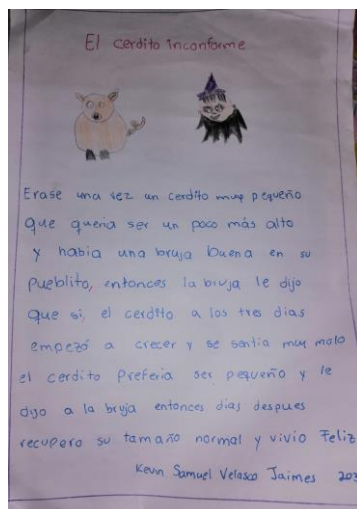 El cerdito inconforme
Erase una vez un cerdito muy pequeño
que queria ser un poco más alto
y habia una bruja buena en su
pueblito, entonces la bruja le dijo
que si, el cerdito a los tres dias
empezó a crecer y se sentia muy malo
el cerdito preferia ser pequeño y le
dijo a la bruja entonces dias despues
recupero su tamaño normal y vivio Feliz
Kevin Samuel Velasco Jaimes 203